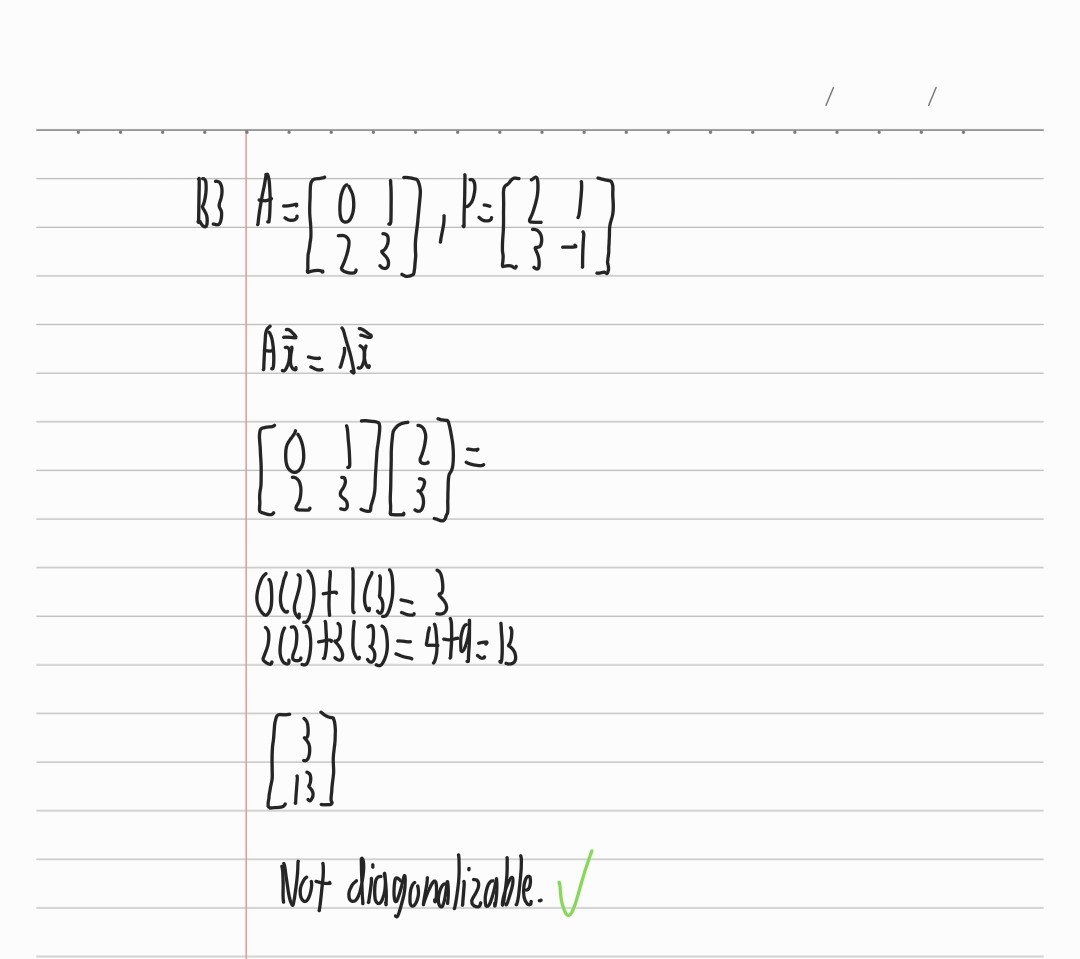 / /
B3 A = [0 1; 2 3], P = [2 1; 3 -1]
Ax⃗ = λx⃗
[0 1; 2 3][2; 3] =
0(2)+1(3) = 3
2(2)+3(3) = 4+9 = 13
[3; 13]
Not diagonalizable. ✓